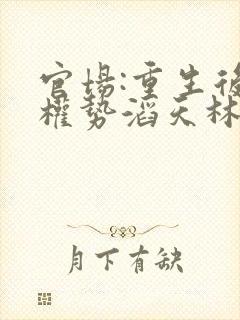 官場:重生後
權勢滔天林
月下有缺